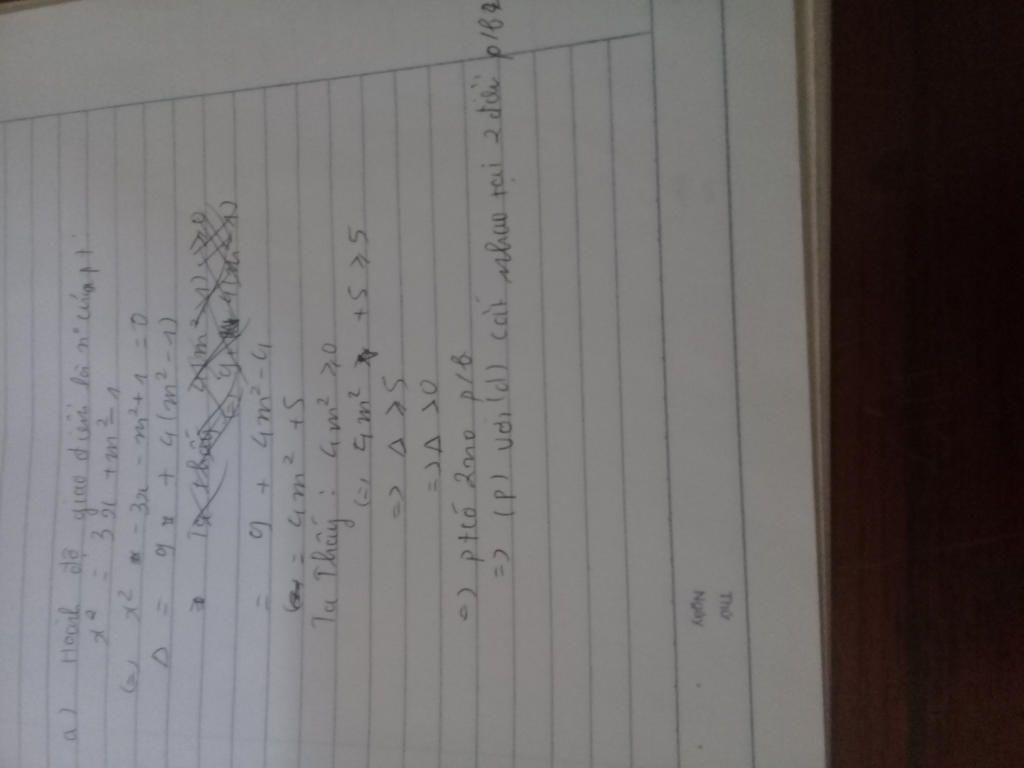 a) Hoành độ giao điểm là n° của pt
x² = 3x + m² - 1
(=) x² - 3x - m² + 1 = 0
Δ = 9 + 4(m² - 1)
= 9 + 4m² - 4
= 4m² + 5
Ta thấy: 4m² ≥ 0
(=) 4m² + 5 ≥ 5
=) Δ ≥ 5
=) Δ > 0
=) pt có 2no p/b
=) (p) với (d) cắt nhau tại 2 điểm p/b
Thứ
Ngày